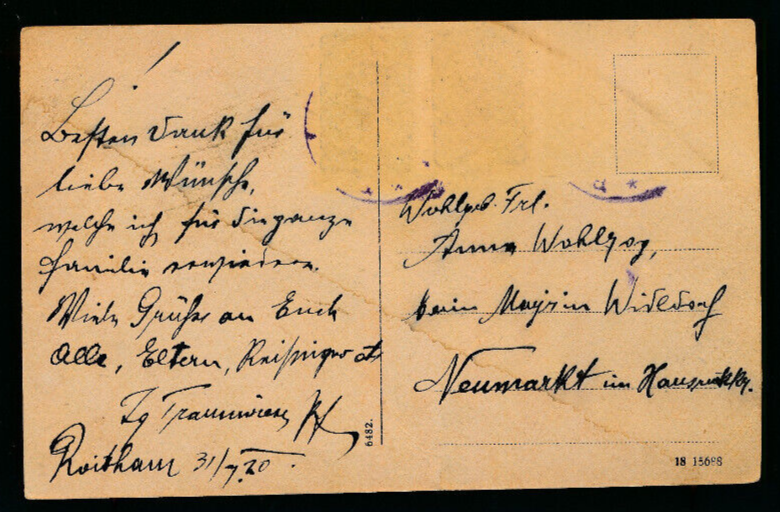 Besten Dank für
liebe Wünsche,
welche ich für die ganze
Familie erwiedere.
Viele Grüße an Euch
Alle, Eltern, Reisinger etc
Roitham 31/ 20.
6482.
Wohlgeb. Frl.
Anna Wohlzog,
beim
Neumarkt im Hausruckkr.
18 15698